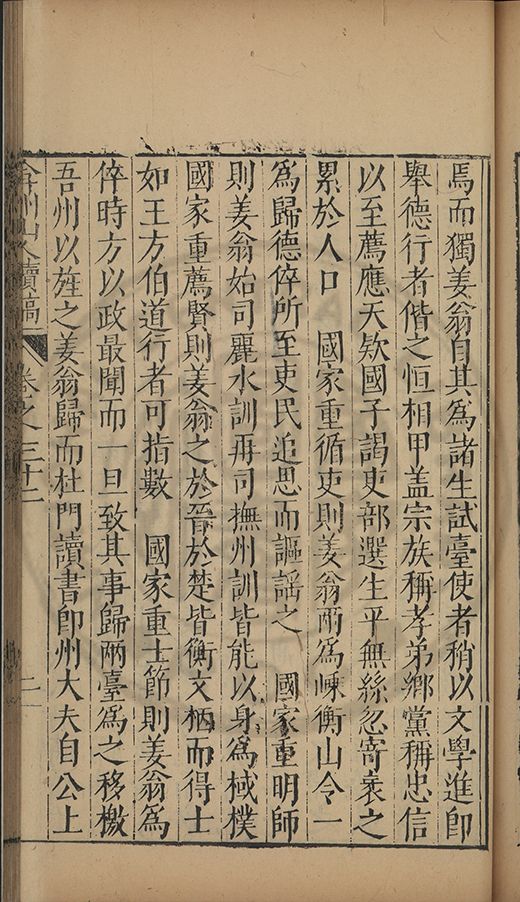 焉而獨姜翁自其爲諸生試臺使者稍以文學進卽
舉德行者偕之恒相甲盖宗族稱孝弟鄉黨稱忠信
以至薦應天欵國子謁吏部選生平無絲忽寄衆之
累於人口　國家重循吏則姜翁兩爲嵊衡山令一
爲歸德倅所至吏民追思而謳謡之　國家重明師
則姜翁始司麗水訓再司撫州訓皆能以身爲棫樸
國家重薦賢則姜翁之於晉於楚皆衡文柄而得士
如王方伯道行者可指數　國家重士節則姜翁爲
倅時方以政最聞而一旦致其事歸兩臺爲之移檄
吾州以旌之姜翁歸而杜門讀書卽州大夫自公上
弇州山人續稿　卷之三十二　二